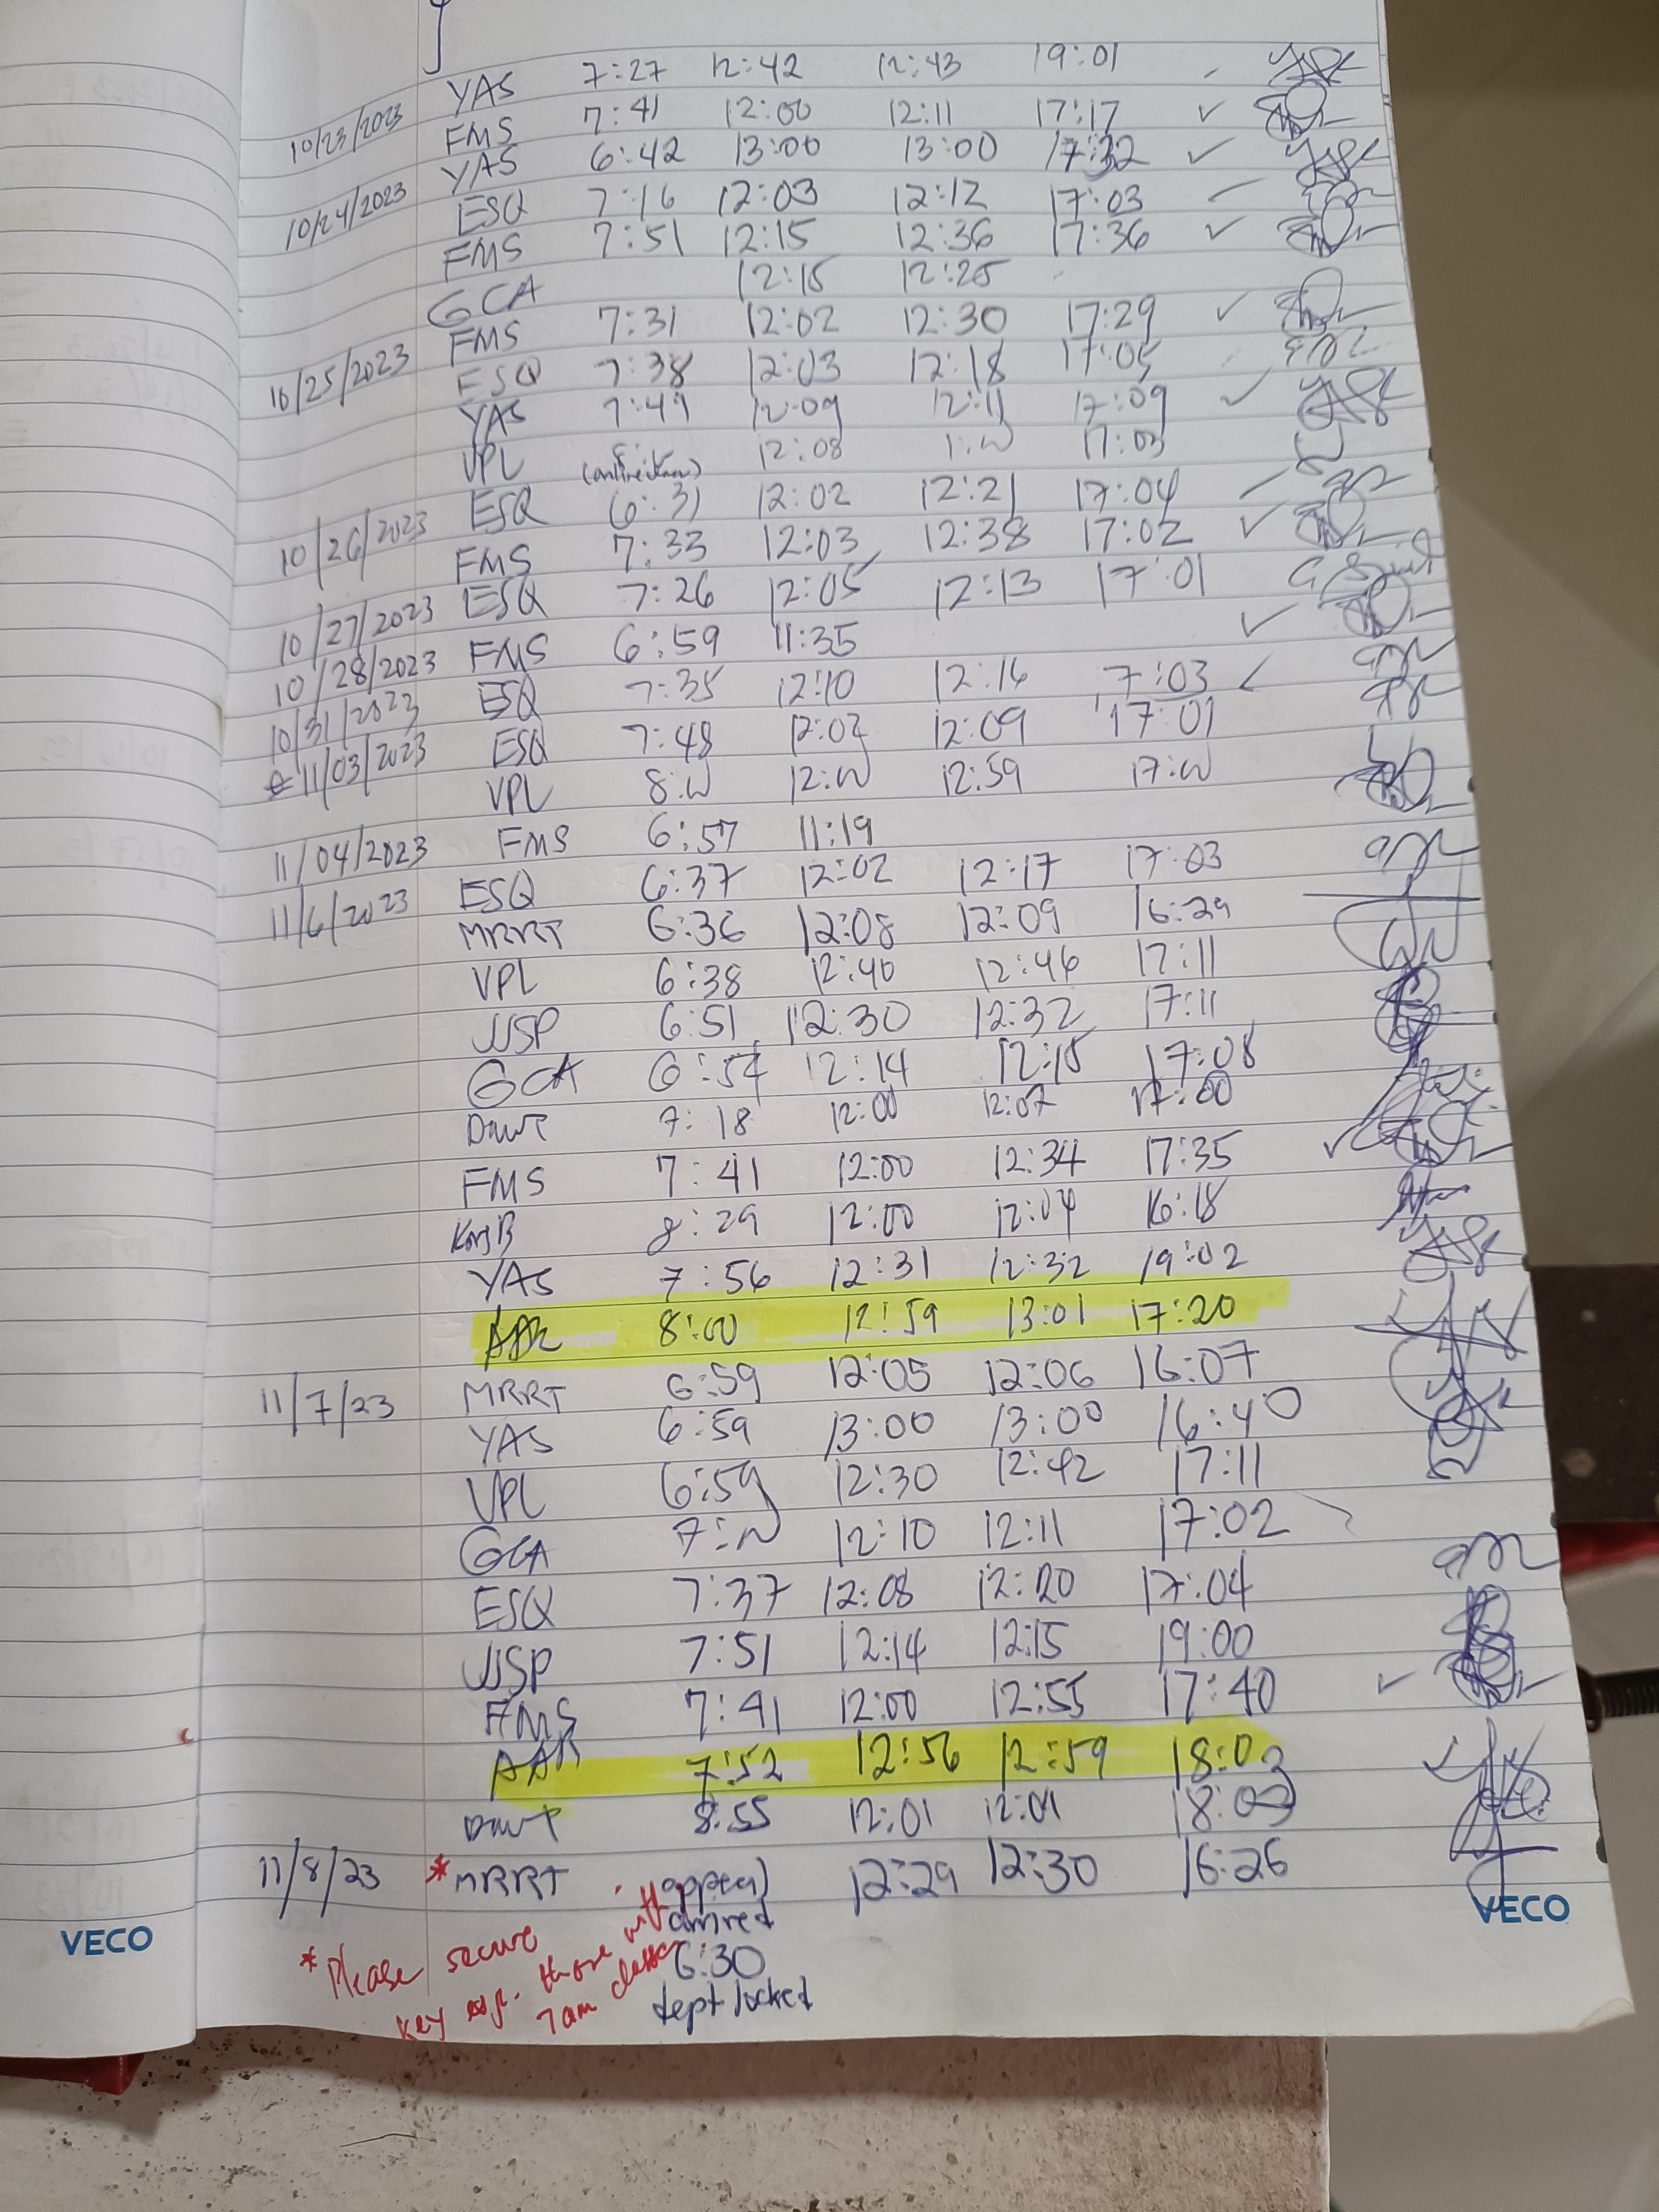 YAS 7:27 12:42 12:43 19:01
10/23/2023 FMS 7:41 12:00 12:11 17:17 ✓
YAS 6:42 13:00 13:00 17:32 ✓
10/24/2023 ESQ 7:16 12:03 12:12 17:03
FMS 7:51 12:15 12:36 17:36 ✓
GCA 12:15 12:25
10/25/2023 FMS 7:31 12:02 12:30 17:29 ✓
ESQ 7:38 12:03 12:18 17:05
YAS 7:49 12:09 12:11 17:09 ✓
VPL 12:08 17:03
10/26/2023 ESQ 6:31 12:02 12:21 17:04
FMS 7:33 12:03 12:38 17:02 ✓
10/27/2023 ESQ 7:26 12:05 12:13 17:01
10/28/2023 FMS 6:59 11:35 ✓
10/31/2023 ESQ 7:35 12:10 12:16 17:03 ✓
11/03/2023 ESQ 7:48 12:02 12:09 17:01
VPL 8:00 12:00 12:59 17:00
11/04/2023 FMS 6:57 11:19
11/6/2023 ESQ 6:37 12:02 12:17 17:03
MRRT 6:36 12:08 12:09 16:29
VPL 6:38 12:40 12:46 17:11
JJSP 6:51 12:30 12:32 17:11
GCA 6:54 12:14 12:15 17:08
7:18 12:00 12:07 17:00
FMS 7:41 12:00 12:34 17:35 ✓
8:29 12:00 12:04 16:18
YAS 7:56 12:31 12:32 19:02
AAR 8:00 12:59 13:01 17:20
11/7/23 MRRT 6:59 12:05 12:06 16:07
YAS 6:59 13:00 13:00 16:40
VPL 6:59 12:30 12:42 17:11
GCA 7:00 12:10 12:11 17:02
ESQ 7:37 12:08 12:20 17:04
JJSP 7:51 12:14 12:15 19:00
FMS 7:41 12:00 12:55 17:40 ✓
AAR 7:52 12:56 12:59 18:03 ✓
8:55 12:01 12:01 18:03
11/8/23 *MRRT 12:29 12:30 16:26
arrived
6:30
dept locked
* Please secure
key esp. those with
7am classes
VECO
VECO